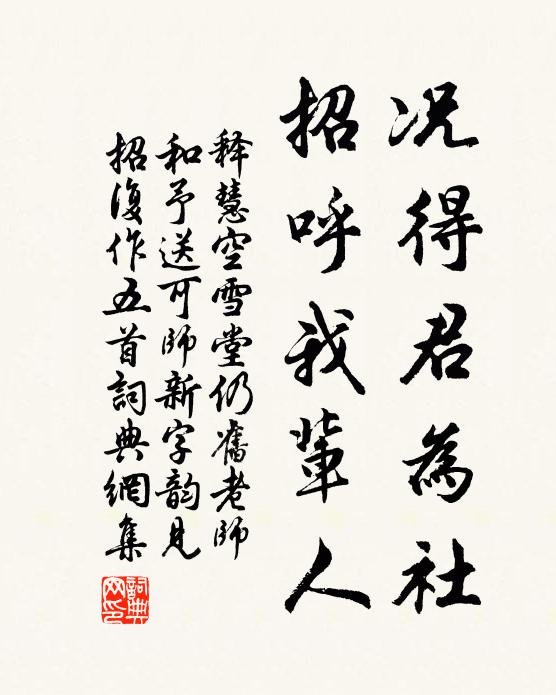 况得君為社
招呼我輩人
释慧空雪堂仍舊老師
和予送可師新字韵見
招復作五首詞典網集
詞典
网印